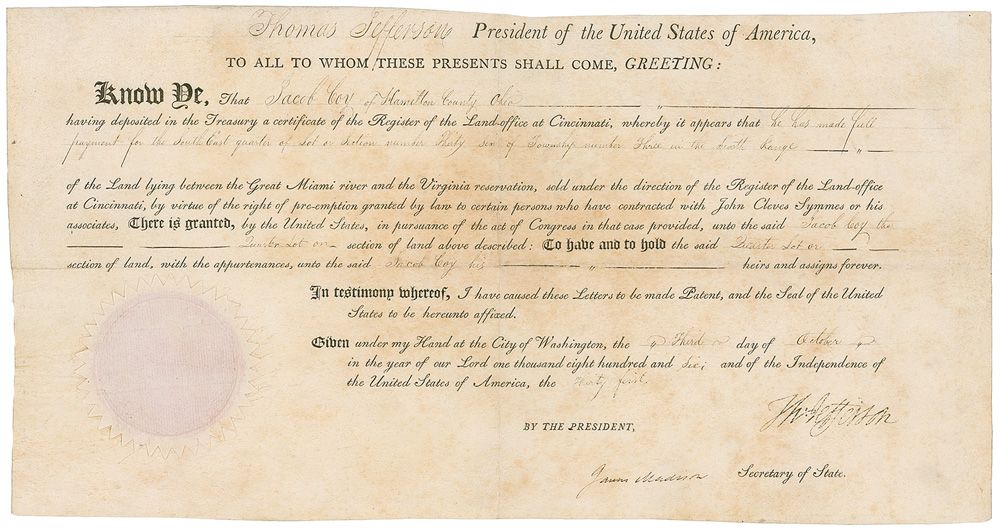 Thomas Jefferson President of the United States of America,
TO ALL TO WHOM THESE PRESENTS SHALL COME, GREETING:
Know Ye, That Jacob Coy of Hamilton County Ohio "
having deposited in the Treasury a certificate of the Register of the Land-office at Cincinnati, whereby it appears that he has made full
payment for the South East quarter of Lot or Section number Thirty six of Township number Three in the Range "
of the Land lying between the Great Miami river and the Virginia reservation, sold under the direction of the Register of the Land-office
at Cincinnati, by virtue of the right of pre-emption granted by law to certain persons who have contracted with John Cleves Symmes or his
associates, There is granted, by the United States, in pursuance of the act of Congress in that case provided, unto the said Jacob Coy the
Quarter Lot or section of land above described: To have and to hold the said Quarter Lot or
section of land, with the appurtenances, unto the said Jacob Coy his " heirs and assigns forever.
In testimony whereof, I have caused these Letters to be made Patent, and the Seal of the United
States to be hereunto affixed.
Given under my Hand at the City of Washington, the Third day of October
in the year of our Lord one thousand eight hundred and Six; and of the Independence of
the United States of America, the Thirty first.
Th: Jefferson
BY THE PRESIDENT,
James Madison Secretary of State.